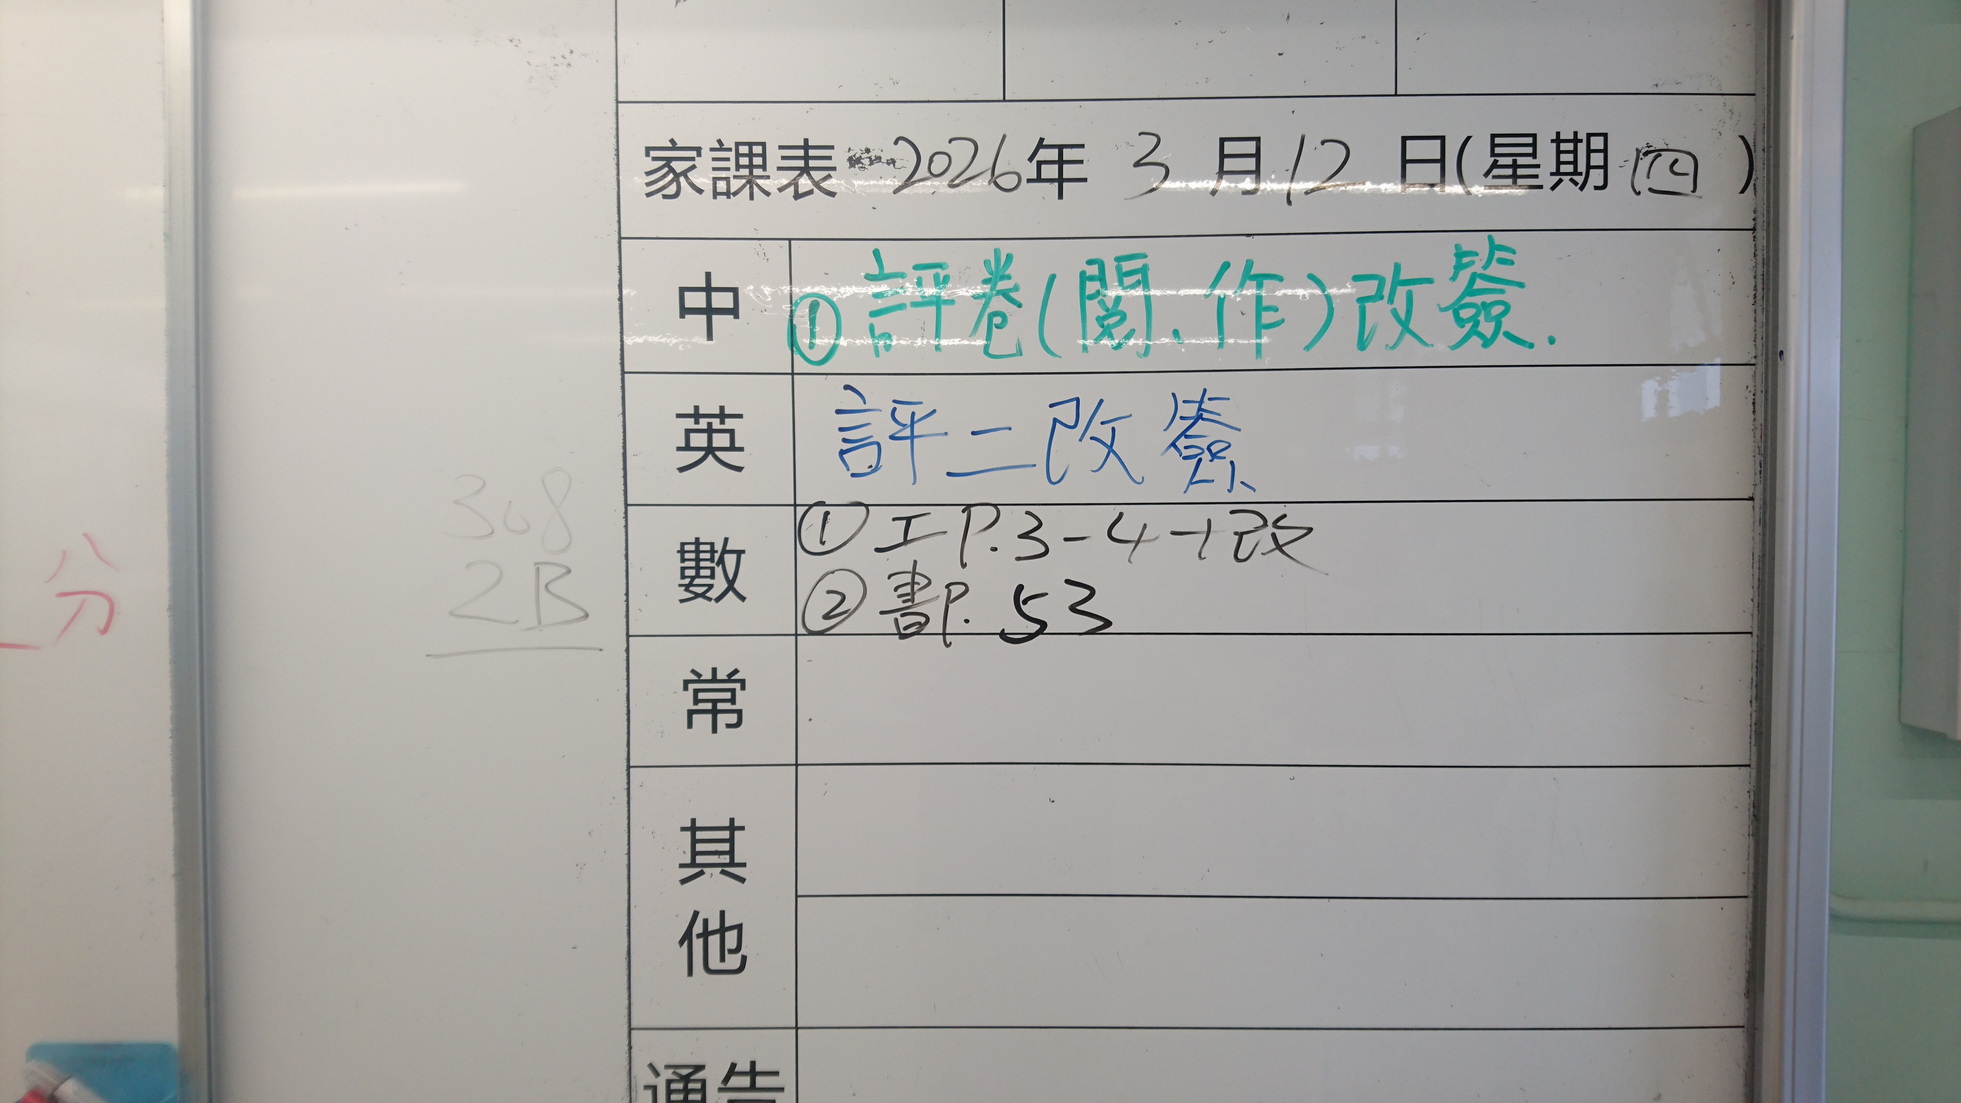 家課表 2026年 3 月 12 日(星期 四 )
中 ①評卷(閱、作)改簽.
英 評二改簽
數 ①工P.3-4+改
②書P.53
常
其他
通告
308
2B
八
分